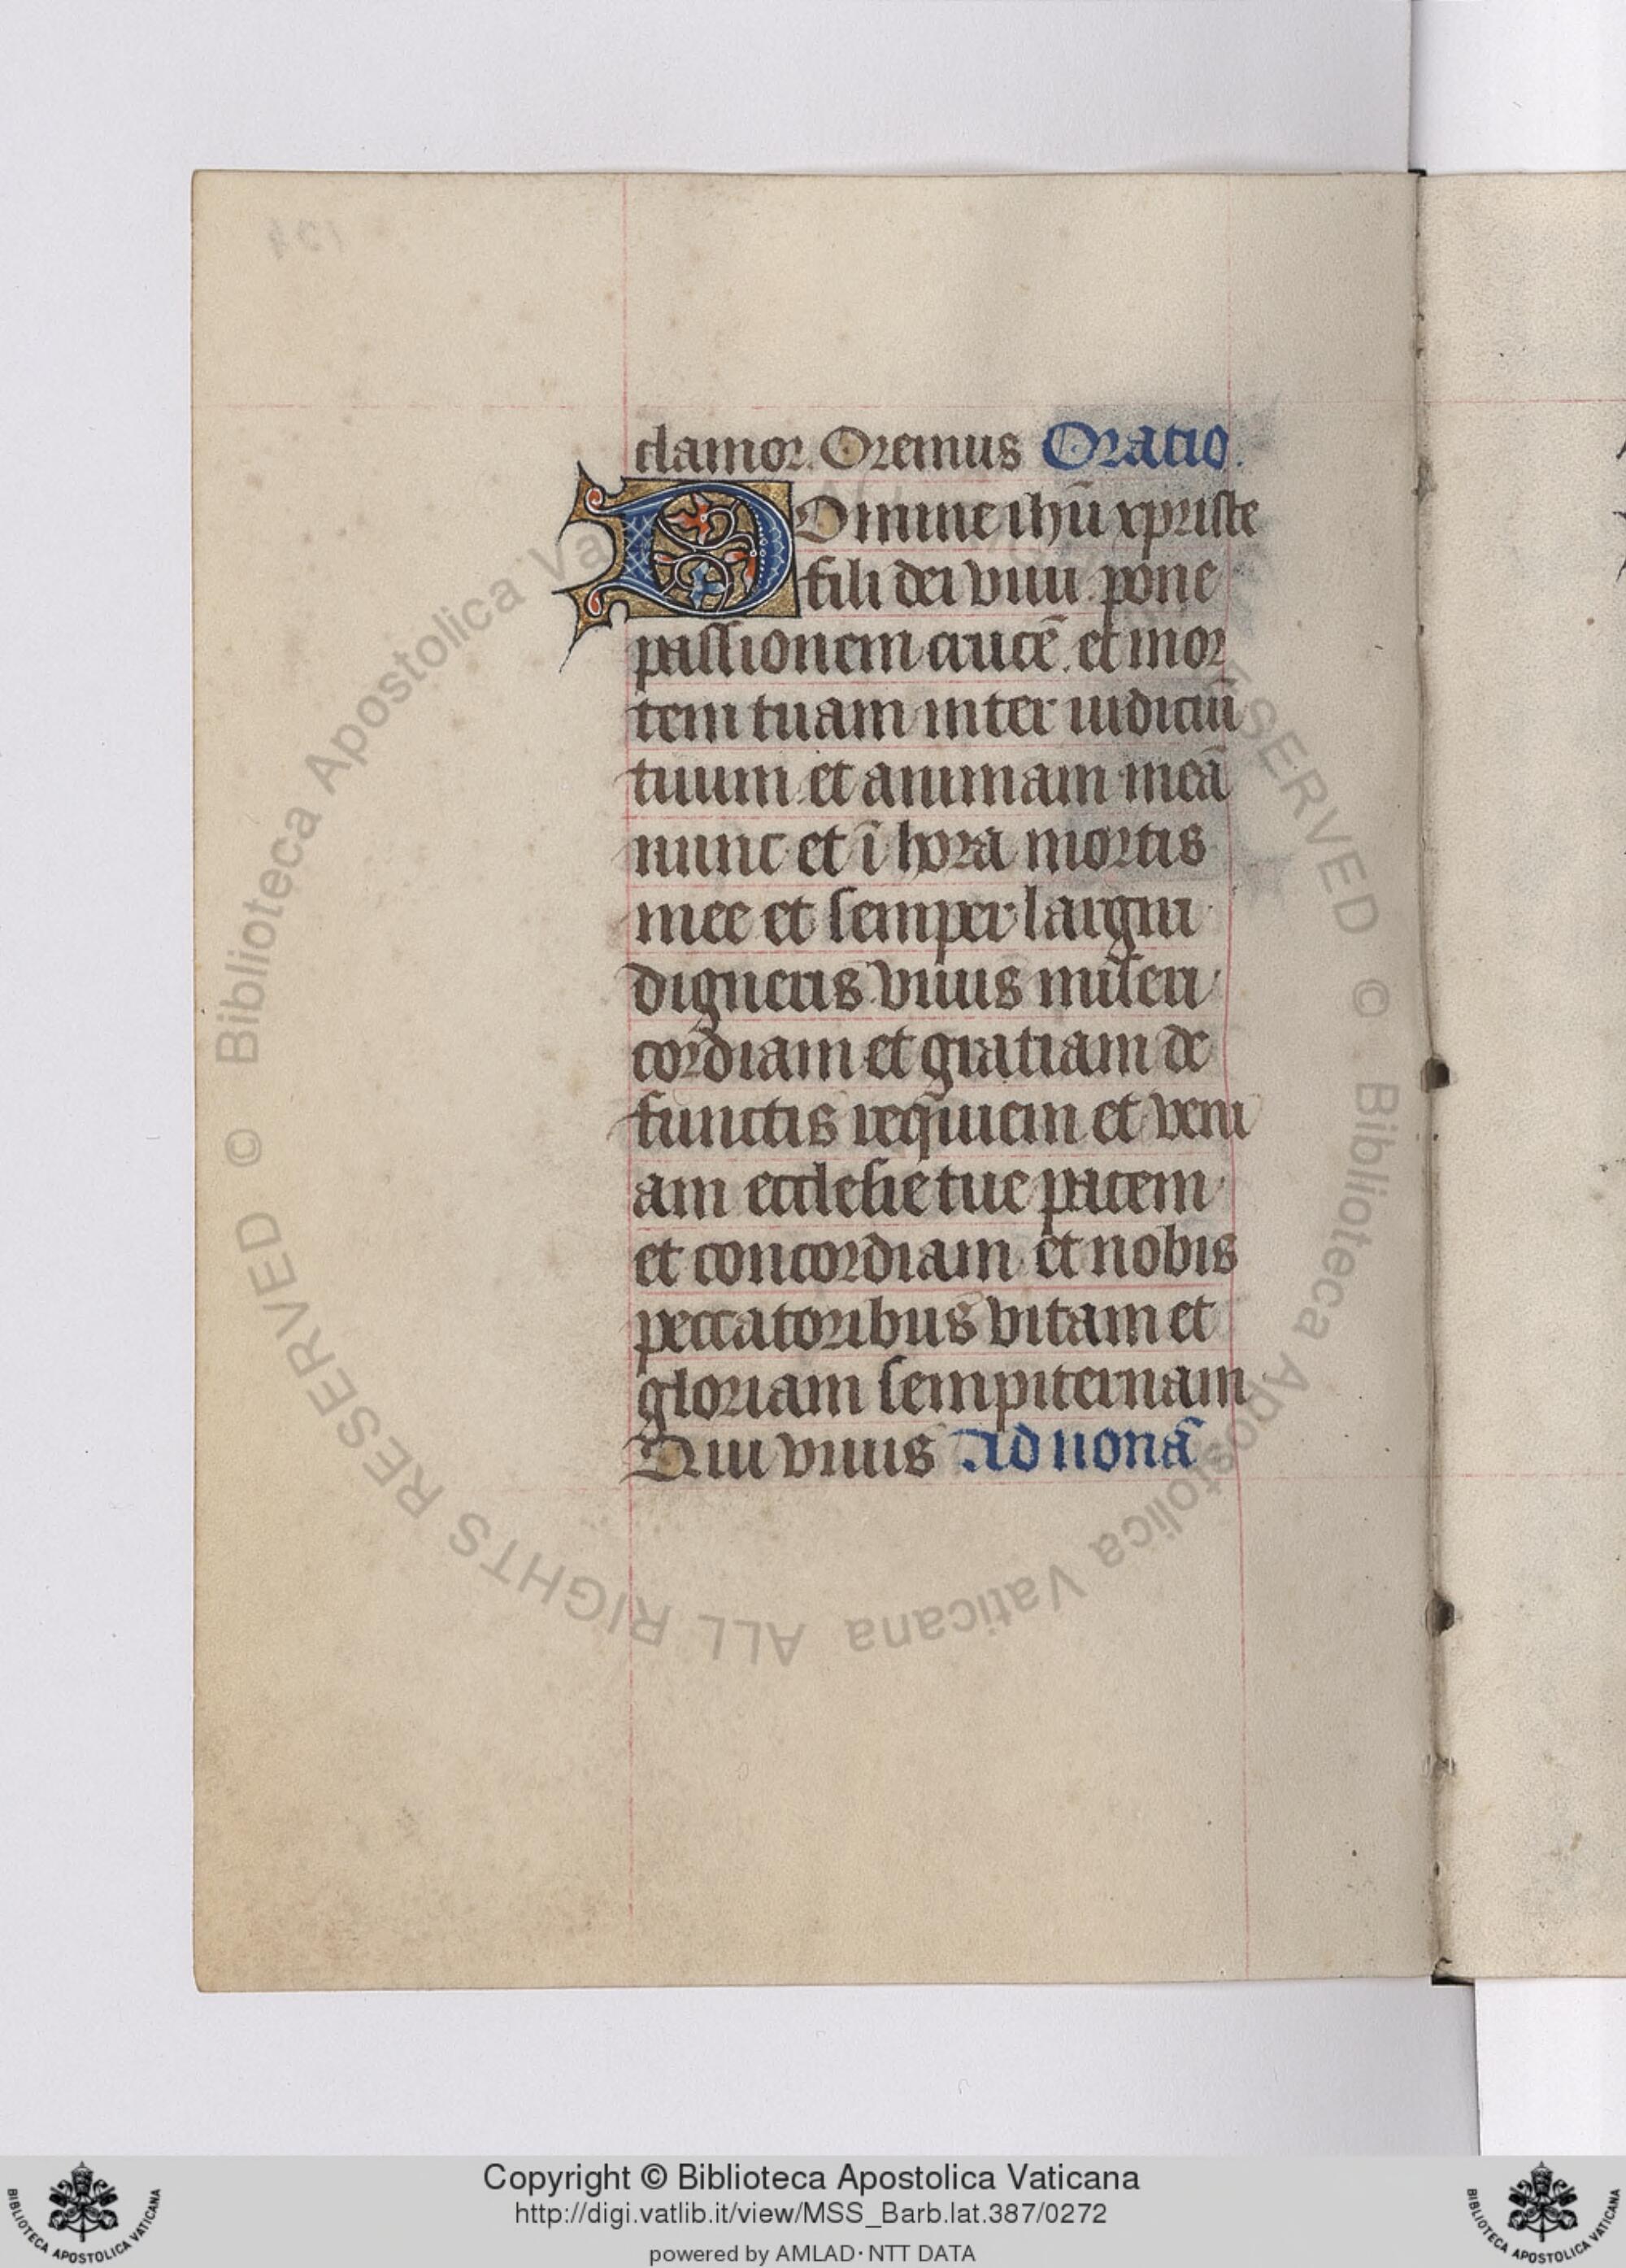 clamor. Oremus Oratio.
DOmine ihū xpriste
fili dei viui pone
passionem crucē et mor
tem tuam inter iudiciū
tuum et animam meā
nunc et ī hora mortis
mee et semper largiri
digneris viuis miseri
cordiam et gratiam de
functis requiem et veni
am ecclesie tue pacem
et concordiam et nobis
peccatoribus vitam et
gloriam sempiternam
Qui viuis Ad nonā
© Biblioteca Apostolica Vaticana ALL RIGHTS RESERVED © Biblioteca Apostolica Vaticana ALL RIGHTS RESERVED
Copyright © Biblioteca Apostolica Vaticana
http://digi.vatlib.it/view/MSS_Barb.lat.387/0272
powered by AMLAD · NTT DATA
BIBLIOTECA APOSTOLICA VATICANA
BIBLIOTECA APOSTOLICA VATICANA